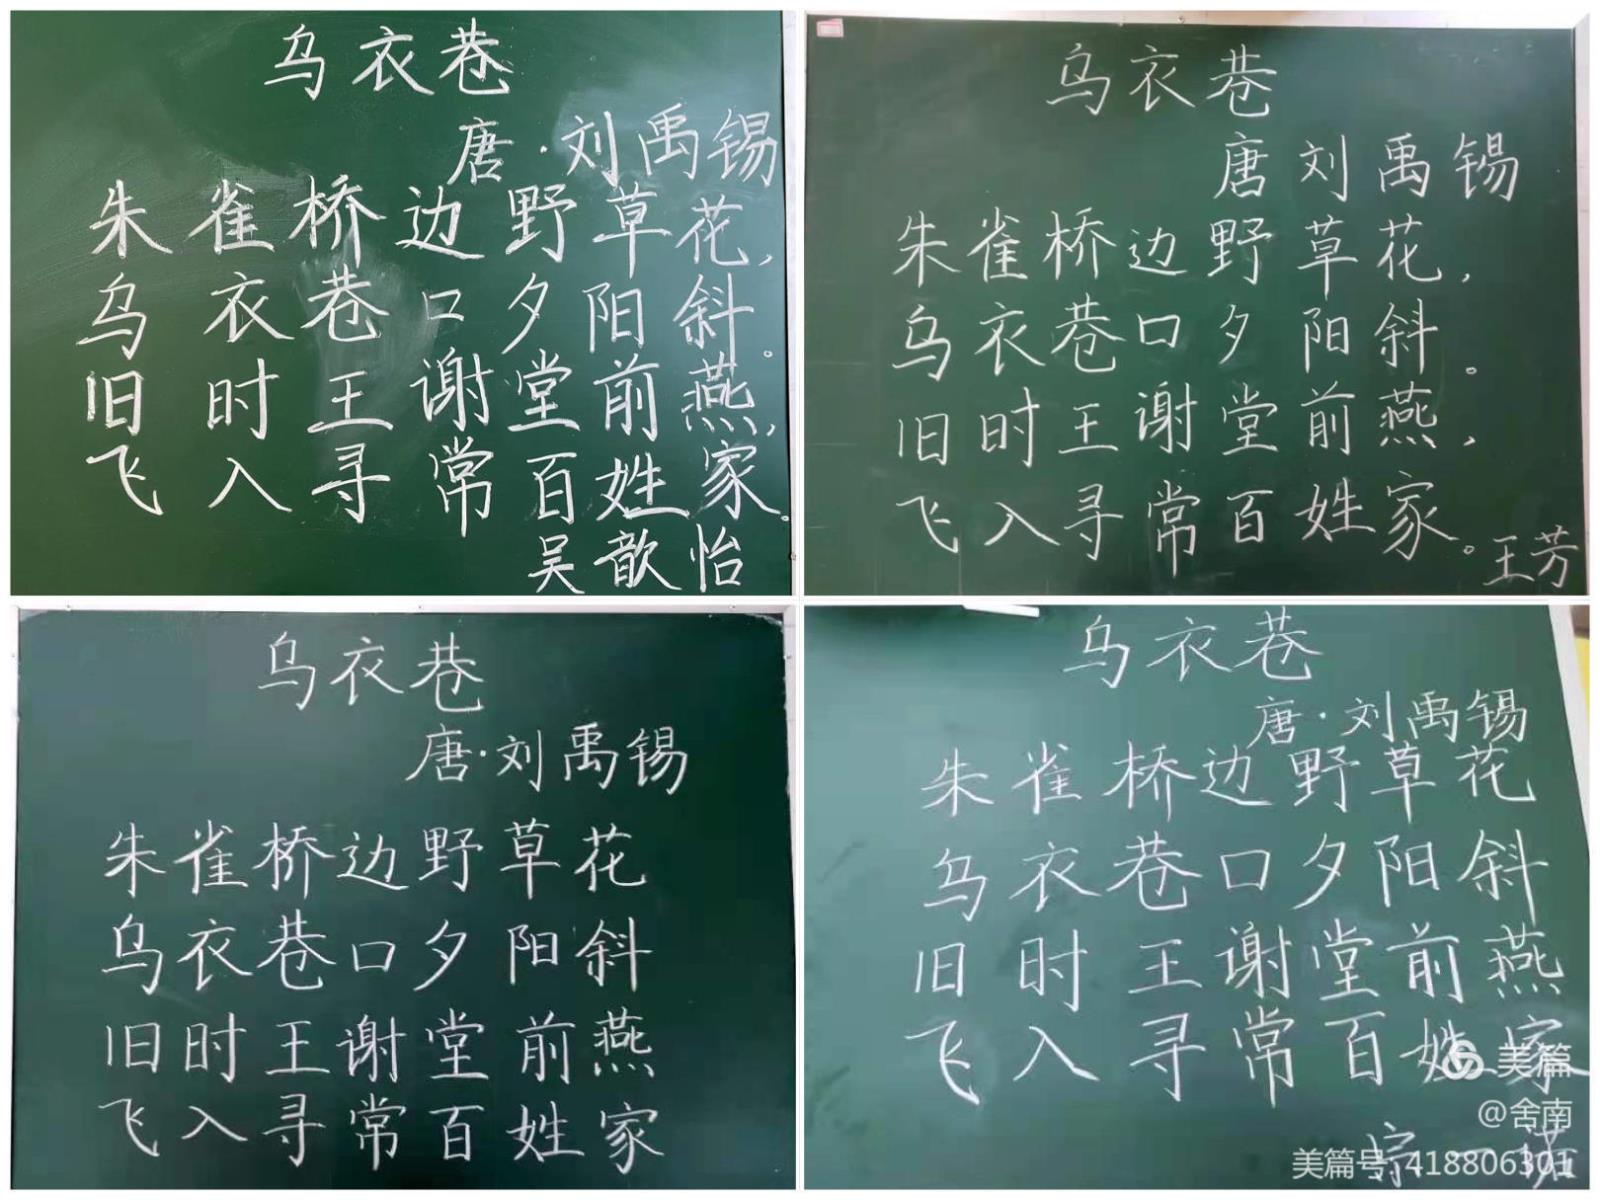 乌衣巷
唐·刘禹锡
朱雀桥边野草花,
乌衣巷口夕阳斜。
旧时王谢堂前燕,
飞入寻常百姓家。
吴歆怡
乌衣巷
唐 刘禹锡
朱雀桥边野草花,
乌衣巷口夕阳斜。
旧时王谢堂前燕,
飞入寻常百姓家。
王芳
乌衣巷
唐·刘禹锡
朱雀桥边野草花
乌衣巷口夕阳斜
旧时王谢堂前燕
飞入寻常百姓家
乌衣巷
唐·刘禹锡
朱雀桥边野草花
乌衣巷口夕阳斜
旧时王谢堂前燕
飞入寻常百姓家
美篇
@舍南
美篇号:418806301